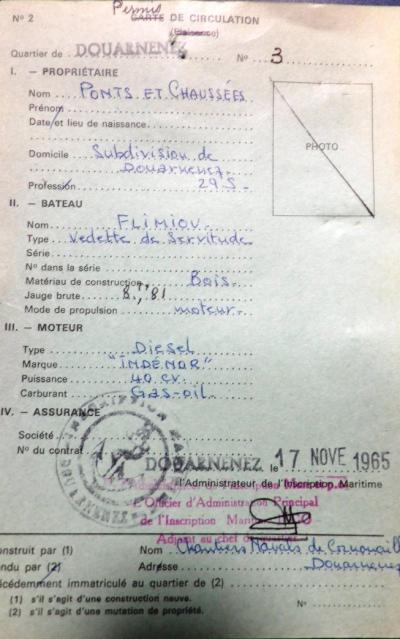 Permis
Nº 2 CARTE DE CIRCULATION
(Plaisance)
Quartier de DOUARNENEZ Nº 3
I. — PROPRIÉTAIRE
Nom PONTS ET CHAUSSÉES
Prénom
Date et lieu de naissance
PHOTO
Domicile Subdivision de
Douarnenez
Profession 29 S.
II. — BATEAU
Nom FLIMIOU
Type Vedette de Servitude
Série
Nº dans la série
Matériau de construction Bois
Jauge brute 8,81
Mode de propulsion moteur
III. — MOTEUR
Type Diesel
Marque "INDENOR"
Puissance 40 cv.
Carburant Gas-oil
IV. — ASSURANCE
Société
Nº du contrat
DOUARNENEZ le 17 NOVE 1965
l'Administrateur de l'Inscription Maritime
L'Officier d'Administration Principal
de l'Inscription Maritime
Adjoint au chef du quartier
onstruit par (1) Nom Chantiers Navals de Cornouaill
ndu par (2) Adresse Douarnenez
écédemment immatriculé au quartier de (2)
(1) s'il s'agit d'une construction neuve.
(2) s'il s'agit d'une mutation de propriété. Nº